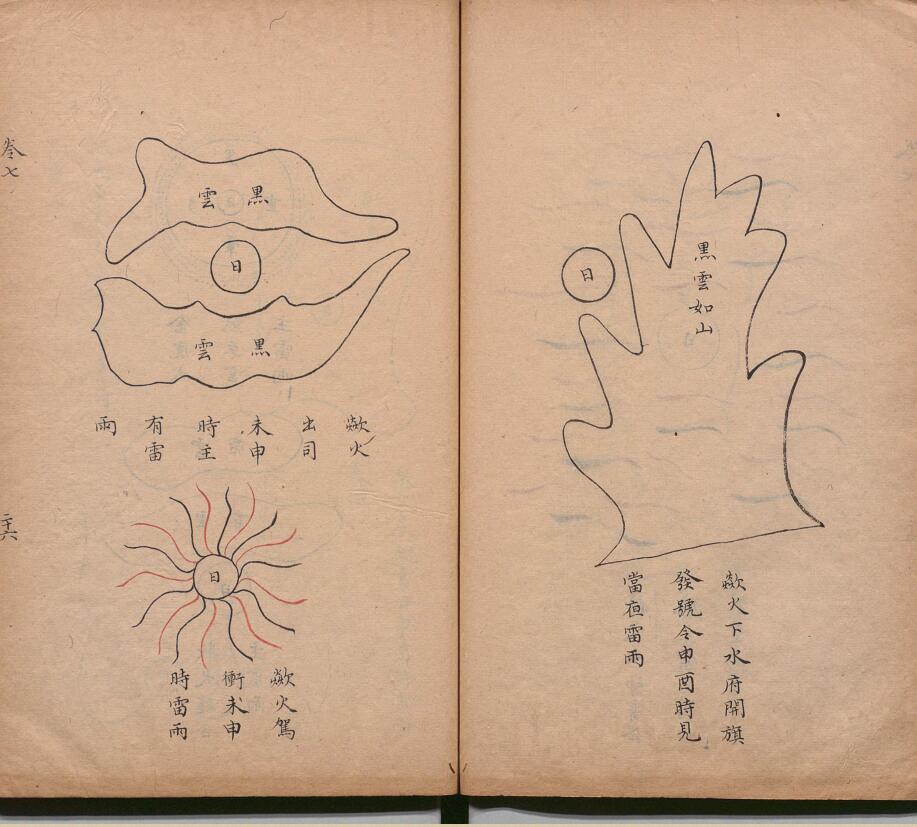 黑雲如山
日
歘火下水府開旗
發號令申酉時見
當夜雷雨
黑雲
日
黑雲
歘火
出司
未申
時主
有雷
雨
日
歘火駕
衝未申
時雷雨
卷七
二十六